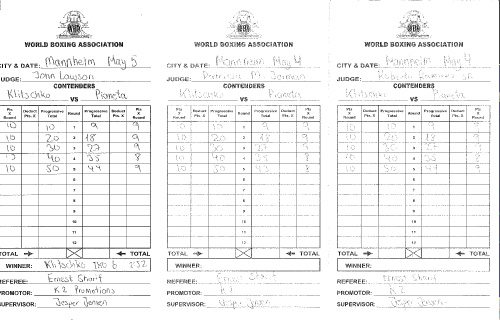 WORLD BOXING ASSOCIATION
CITY & DATE: Mannheim May 5
JUDGE: John Lawson
CONTENDERS
Klitschko VS Pianeta
Pts X Round Deduct Pts. X Progressive Total Round Progressive Total Deduct Pts. X Pts X Round
10 10 1 9 9
10 20 2 18 9
10 30 3 27 9
10 40 4 35 8
10 50 5 44 9
6
7
8
9
10
11
12
TOTAL TOTAL
WINNER: Klitschko TKO 6 2:52
REFEREE: Ernest Sharif
PROMOTOR: K2 Promotions
SUPERVISOR: Jesper Jensen
WORLD BOXING ASSOCIATION
CITY & DATE: Mannheim May 4
JUDGE: Patricia M. Jarman
CONTENDERS
Klitschko VS Pianeta
Pts X Round Deduct Pts. X Progressive Total Round Progressive Total Deduct Pts. X Pts X Round
10 10 1 9 9
10 20 2 18 9
10 30 3 27 9
10 40 4 35 8
10 50 5 43 8
6
7
8
9
10
11
12
TOTAL TOTAL
WINNER:
REFEREE: Ernest Sharif
PROMOTOR: K2
SUPERVISOR: Jesper Jensen
WORLD BOXING ASSOCIATION
CITY & DATE: Mannheim May 4
JUDGE: Roberto
CONTENDERS
Klitschko VS Pianeta
Pts X Round Deduct Pts. X Progressive Total Round Progressive Total Deduct Pts. X Pts X Round
10 10 1 9 9
10 20 2 18 9
10 30 3 27 9
10 40 4 35 8
10 50 5 44 9
6
7
8
9
10
11
12
TOTAL TOTAL
WINNER:
REFEREE: Ernest Sharif
PROMOTOR: K2
SUPERVISOR: Jesper Jensen